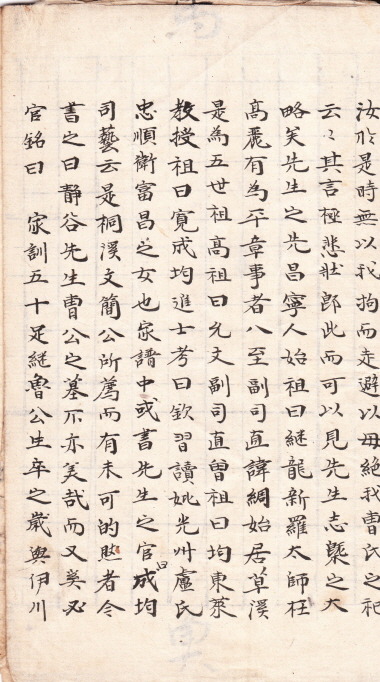 汝於是時無以我拘而走避以毋絶我曺氏之祀
云〻其言極悲壯卽此而可以見先生志槩之大
略矣先生之先昌寧人始祖曰継龍新羅太師在
高麗有爲平章事者八至副司直諱綢始居草溪
是為五世祖高祖曰允文副司直曾祖曰均東萊
教授祖曰寛成均進士考曰欽習讀妣光州盧氏
忠順衛富昌之女也家譜中或書先生之官曰成均
司藝云是桐溪文簡公所薦而有未可的然者今
書之曰靜谷先生曺公之墓不亦美哉而又奚必
官銘曰 家訓五十足継魯公生卒之嵗與伊川